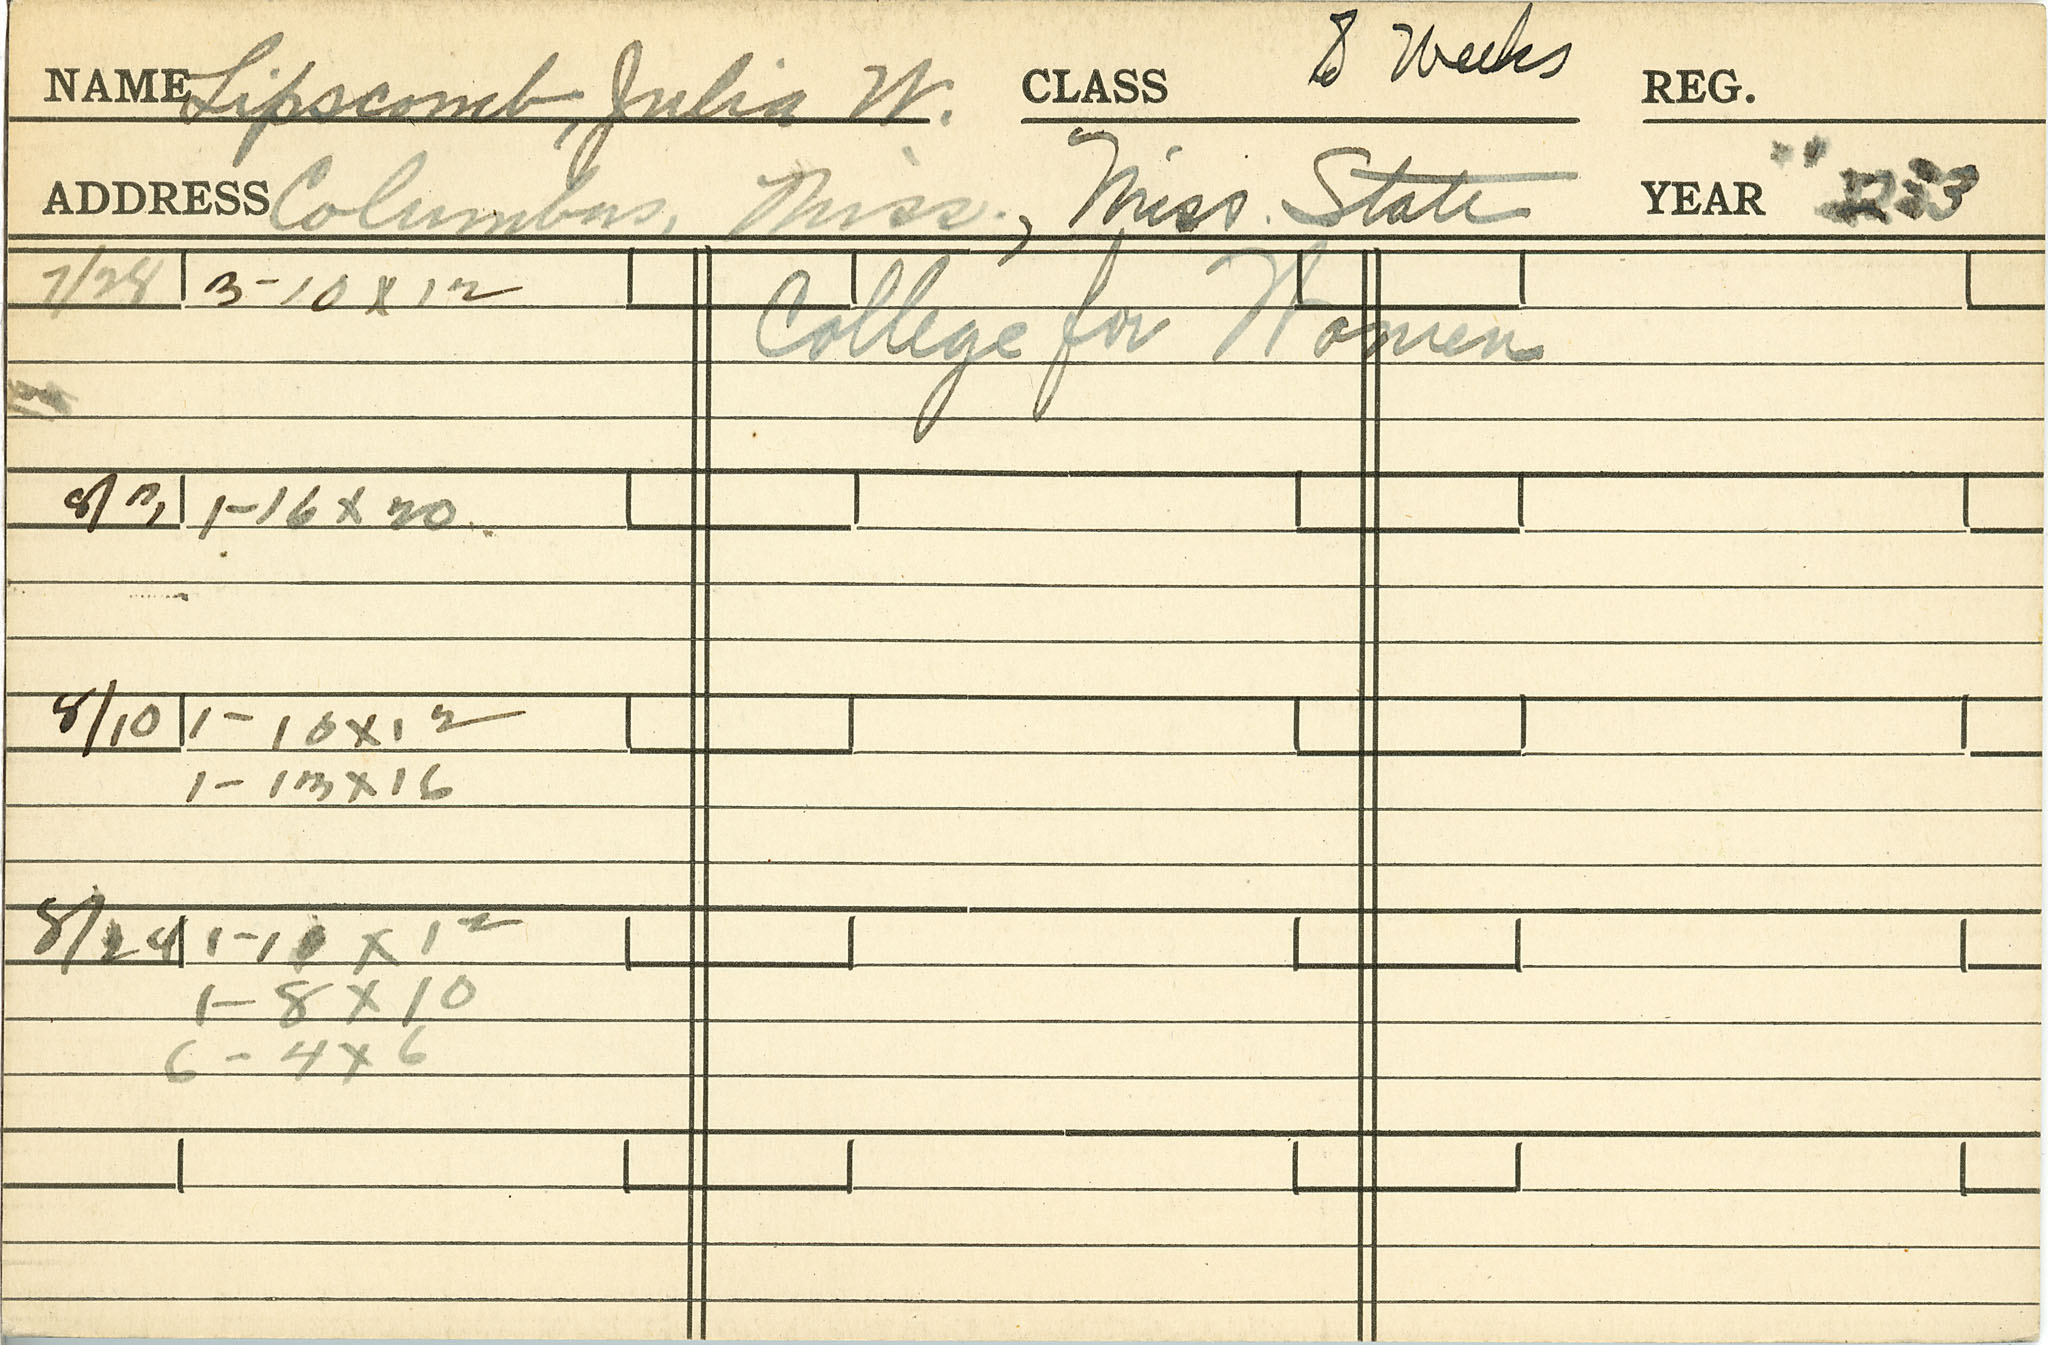 NAME Lipscomb, Julia W. CLASS 8 Weeks REG.
ADDRESS Columbus, Miss., Miss. State YEAR
College for Women
7/28 3-10x12
8/3 1-16x20
8/10 1-10x12
1-13x16
8/24 1-10x12
1-8x10
6-4x6